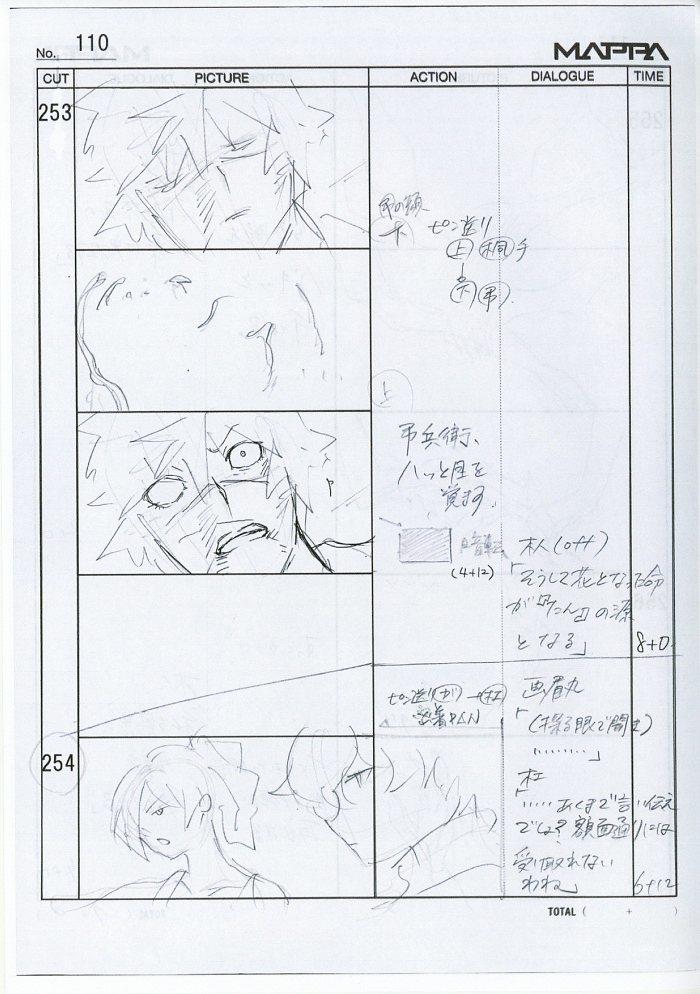 No. 110
MAPPA
CUT PICTURE ACTION DIALOGUE TIME
253
弔の顔
下
ピン送り
上 桐 手
下 弔
上
弔兵衛、
ハッと目を
覚ます。
(4+12)
(off)
「そうして花となった命
が『たん』の源
となる」
8+0
ピン送り(が)→(杠)
密着PAN
画眉丸
「(探る眼で聞く)
………」
254
杠
「……あくまで言い伝え
でしょ?額面通りには
受け取れない
わね」
6+12
TOTAL ( + )